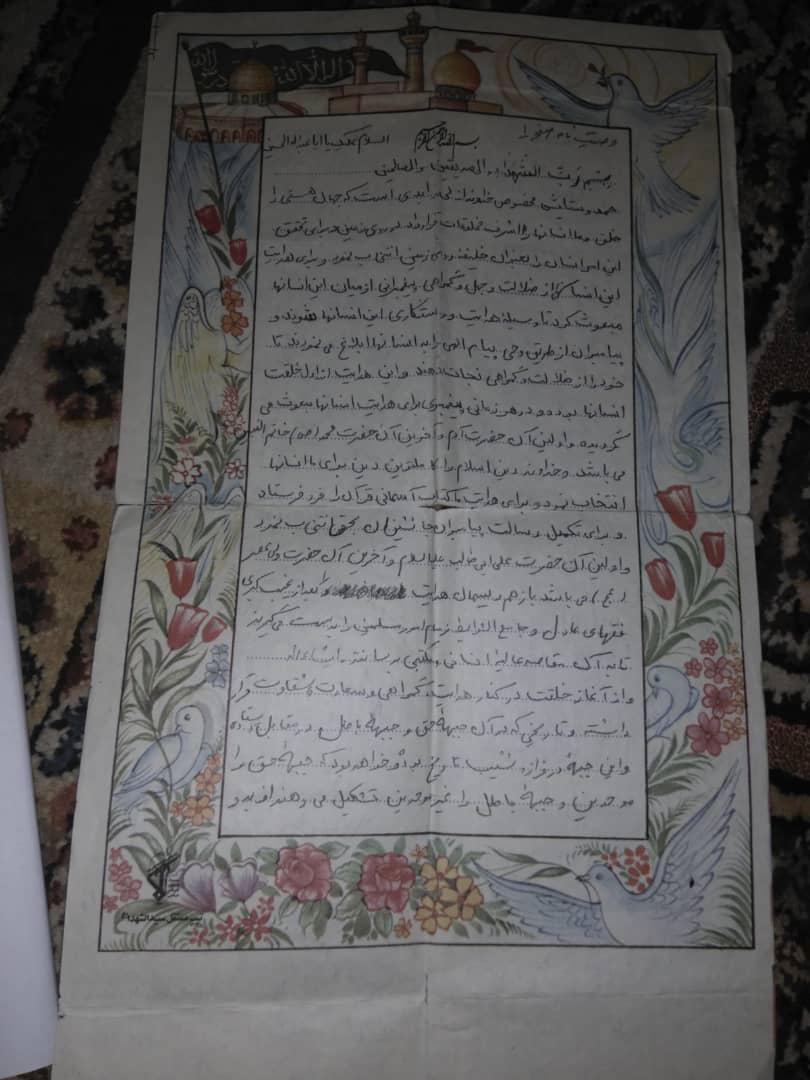 لا اله الا الله
وصیت نامه خود را
بسم الله الرحمن الرحیم
السلام علیک یا ابا عبدالله الحسین
بسم رب الشهداء والصدیقین والصالحین
حمد و ستایش مخصوص خداوند ازلی و ابدی است که جهان هستی را
خلق و ما انسانها را اشرف مخلوقات قرار داد و بر روی زمین و برای تحقق
این امر انسان را بعنوان خلیفه روی زمین انتخاب نمود و برای هدایت
این انسانها از ضلالت و جهل و گمراهی پیامبرانی از میان این انسانها
مبعوث کرد تا وسیله هدایت و رستگاری این انسانها شوند و
پیامبران از طریق وحی پیام الهی را به انسانها ابلاغ می نمودند تا
خود را از ضلالت و گمراهی نجات دهند و این هدایت از اول خلقت
انسانها بوده و در هر زمانی پیغمبری برای هدایت انسانها مبعوث می
گردیده و اولین آن حضرت آدم و آخرین آن حضرت محمد (ص) خاتم النبیین
می باشد و خداوند دین اسلام را کاملترین دین برای ما انسانها
انتخاب نمود و برای هدایت ما کتاب آسمانی قرآن را فرو فرستاد
و برای تکمیل رسالت پیامبران جانشینان بحق انتخاب نمود
و اولین آن حضرت علی ابن ابیطالب علیه السلام و آخرین آن حضرت ولی عصر
(عج) می باشد باز هم ریسمان هدایت و بعد از غیبت کبری
فقهای عادل و جامع الشرایط زمام امور مسلمین را بدست می گیرند
تا به آن مقاصد عالیه انسانی و مکتبی برسانند انشاءالله
و از آغاز خلقت در کنار هدایت، گمراهی و سعادت، شقاوت قرار
داشته و تاریخی که در آن جبهه حق و جبهه باطل در مقابل ایستاده
و این جبهه در فراز و نشیب تاریخ بوده و خواهد بود که جبهه حق را
موحدین و جبهه باطل را غیر موحدین تشکیل می دهند
تیپ مستقل سیدالشهداء